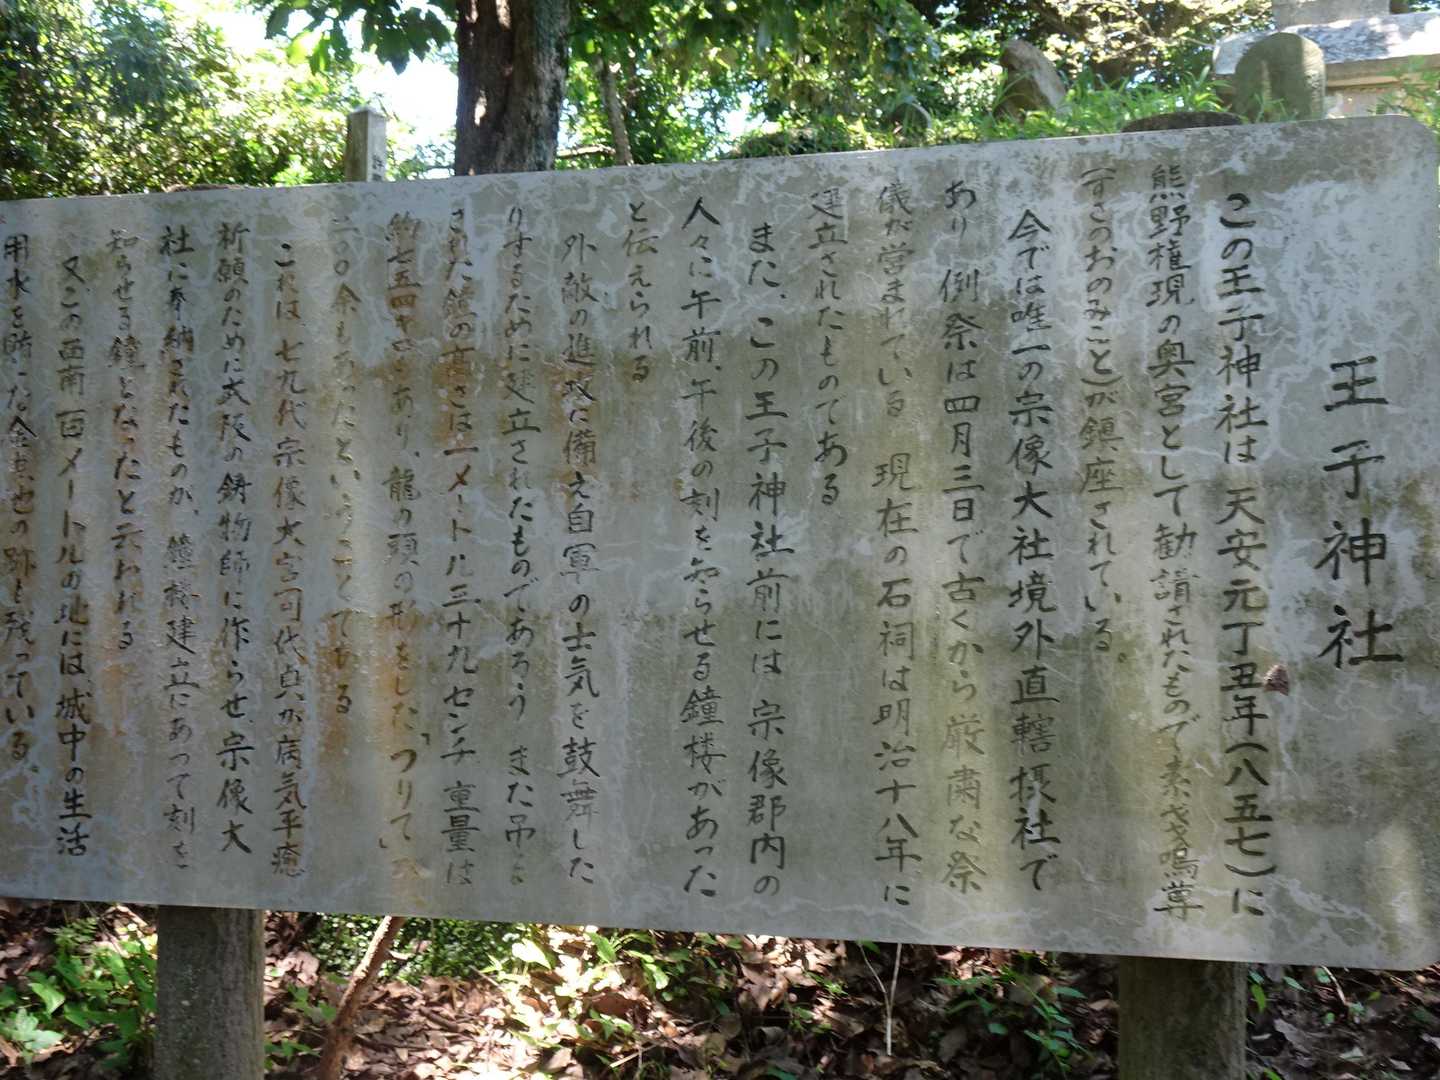 王子神社
この王子神社は天安元丁丑年(八五七)に
熊野権現の奥宮として勧請されたもので素戔嗚尊
(すさのおのみこと)が鎮座されている。
今では唯一の宗像大社境外直轄摂社で
あり 例祭は四月三日で古くから厳粛な祭
儀が営まれている 現在の石祠は明治十八年に
建立されたものである
また、この王子神社前には宗像郡内の
人々に午前、午後の刻を知らせる鐘楼があった
と伝えられる
外敵の進攻に備え自軍の士気を鼓舞した
りするために建立されたものであろう また吊
された鐘の高さは一メートル三十九センチ 重量は
約七五四キロあり、龍の頭の形をした「つりて」
二〇〇余もあったということである
これは、七九代宗像大宮司氏貞が病気平癒
祈願のために大阪の鋳物師に作らせ、宗像大
社に奉納されたものが、鐘楼建立にあって刻を
知らせる鐘となったと云われる
又、この西南一百メートルの地には、城中の生活
用水を賄った 池の跡も残っている。